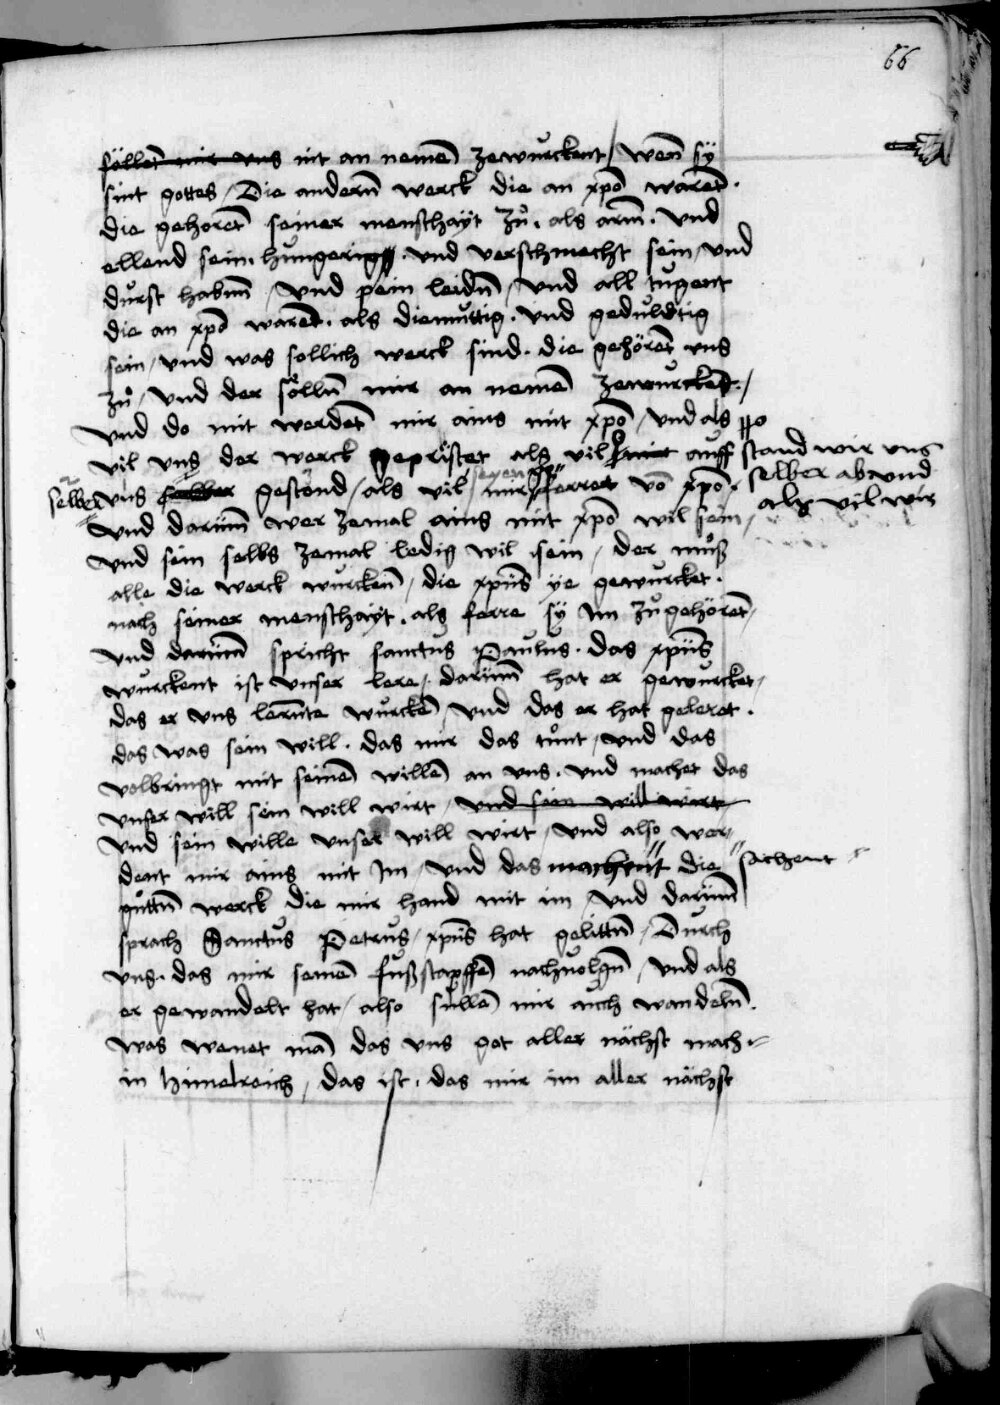 66
söllen mir uns nit an nemen zewurckent / wen sÿ
sint gottes / Die andern werck die an xpo waren .
die gehoren seiner menschayt zů . als arm . Und
ellend sein . hungerig . und verschmecht sein / und
durst habnn / Und pein leidn / Und all tugent
die an xpo waren . als diemuttig . Und geduldig
sein / und was sollich werck sind . die gehören uns
zů / Und der söllen mir an nemen zewurcken . /
Und do mit werden mir ains mit xpo / Und als
vil uns der werck gepristet als vil auff stand wir uns
selber uns gestond / als vil mir ferret vo xpo . selber ab und
als vil wir
Und darumm wer zemal ains mit xpo wil sein /
Und sein selbs zemal ledig wil sein / der muß
alle die werck wurcken / die xpus ye gewurcket .
nach seiner menschayt . als ferre sÿ Im zů gehören /
Und darumm spricht sanctus Paulus . Das xpus
wurckent ist unser lere / darumm hat er gewurcket /
das er uns lernte wurcken / Und das er hat geleret .
das was sein will . das mir das tůnt / Und das
volbringt mit seinen willen an uns . Und machet das
unser will sein will wirt / und sein will wirt
Und sein wille unser will wirt / Und also wer/
dent mir ains mit Im / Und das machent die sachent
gůttn werck die mir hand mit im / Und darumm
sprach Sanctus Petrus / xpus hat gelittn / Durch
uns . das mir seinen fußstapffen nachuolgn / Und als
er gewandelt hat / also süllen mir auch wandeln .
Was wenet man das uns got aller nächst mach /
in himelreich / das ist . das mir im aller nächst